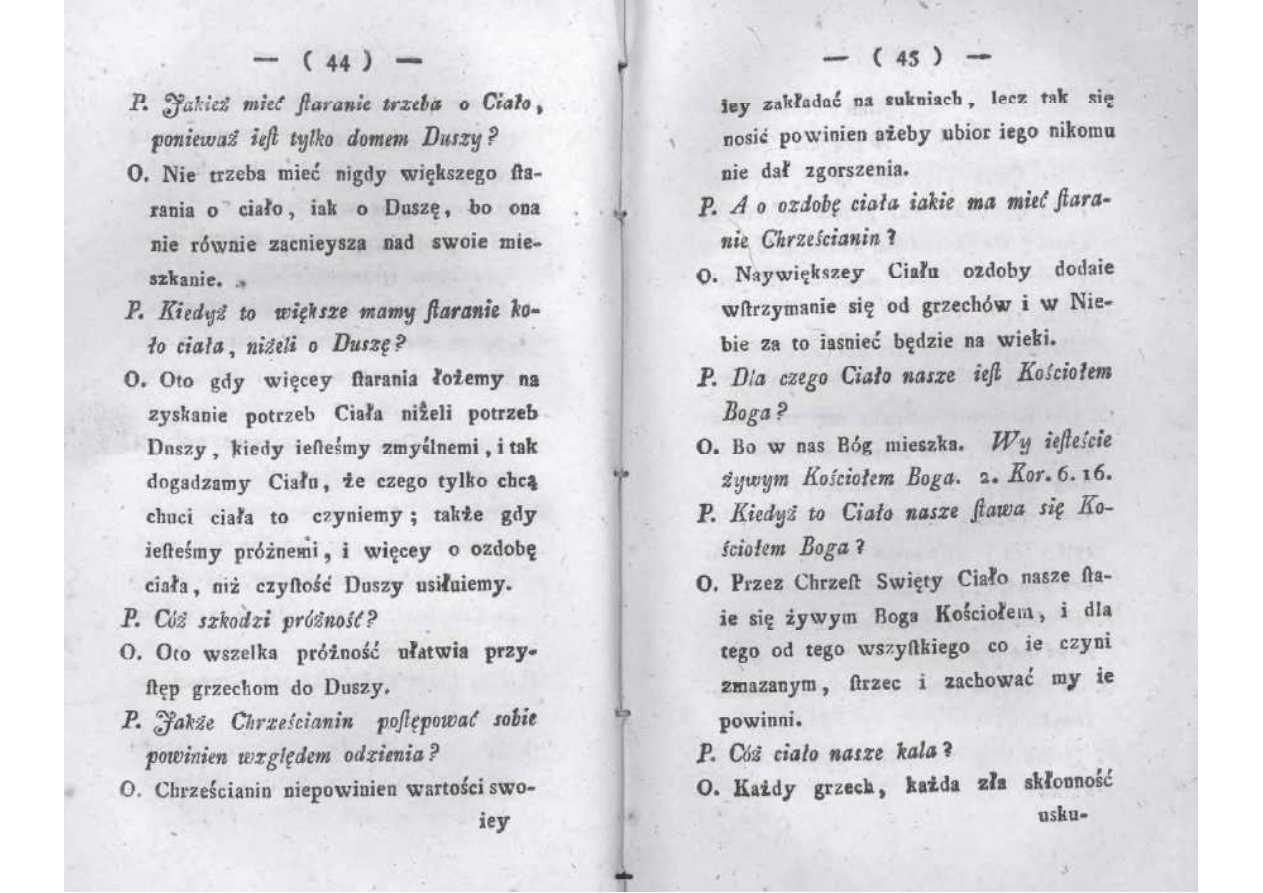 — ( 44 ) —
P. Jakież mieć ſtaranie trzeba o Ciało,
ponieważ ieſt tylko domem Duszy?
O. Nie trzeba mieć nigdy większego ſta-
rania o ciało, iak o Duszę, bo ona
nie równie zacnieysza nad swoie mie-
szkanie.
P. Kiedyż to większe mamy ſtaranie ko-
ło ciała, niżeli o Duszę?
O. Oto gdy więcey ſtarania łożemy na
zyskanie potrzeb Ciała niżeli potrzeb
Duszy, kiedy ieſteśmy zmyślnemi, i tak
dogadzamy Ciału, że czego tylko chcą
chuci ciała to czyniemy; także gdy
ieſteśmy próżnemi, i więcey o ozdobę
ciała, niż czyſtość Duszy usiłuiemy.
P. Cóż szkodzi próżność?
O. Oto wszelka próżność ułatwia przy-
ſtęp grzechom do Duszy.
P. Jakże Chrześcianin poſtępować sobie
powinien względem odzienia?
O. Chrześcianin niepowinien wartości swo-
iey
— ( 45 ) —
iey zakładać na sukniach, lecz tak się
nosić powinien ażeby ubior iego nikomu
nie dał zgorszenia.
P. A o ozdobę ciała iakie ma mieć ſtara-
nie Chrześcianin?
O. Naywiększey Ciału ozdoby dodaie
wſtrzymanie się od grzechów i w Nie-
bie za to iasnieć będzie na wieki.
P. Dla czego Ciało nasze ieſt Kościołem
Boga?
O. Bo w nas Bóg mieszka. Wy ieſteście
żywym Kościołem Boga. 2. Kor. 6. 16.
P. Kiedyż to Ciało nasze ſtawa się Ko-
ściołem Boga?
O. Przez Chrzeſt Swięty Ciało nasze ſta-
ie się żywym Boga Kościołem, i dla
tego od tego wszyſtkiego co ie czyni
zmazanym, ſtrzec i zachować my ie
powinni.
P. Cóż ciało nasze kala?
O. Każdy grzech, każda zła skłonność
usku-